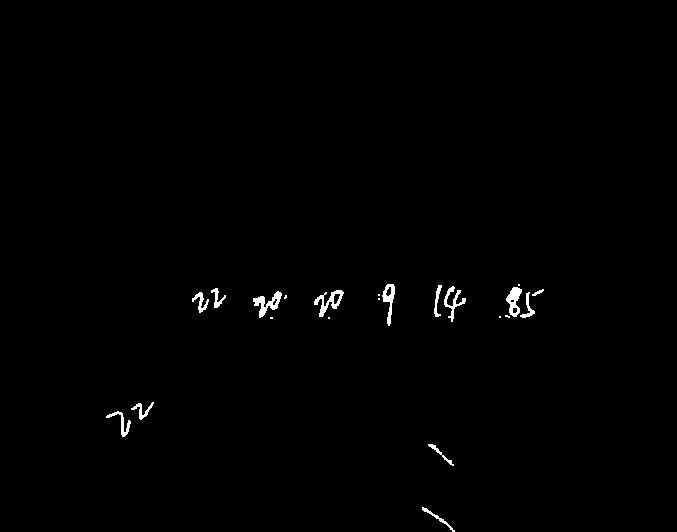 22 20 20 9 14 85
22